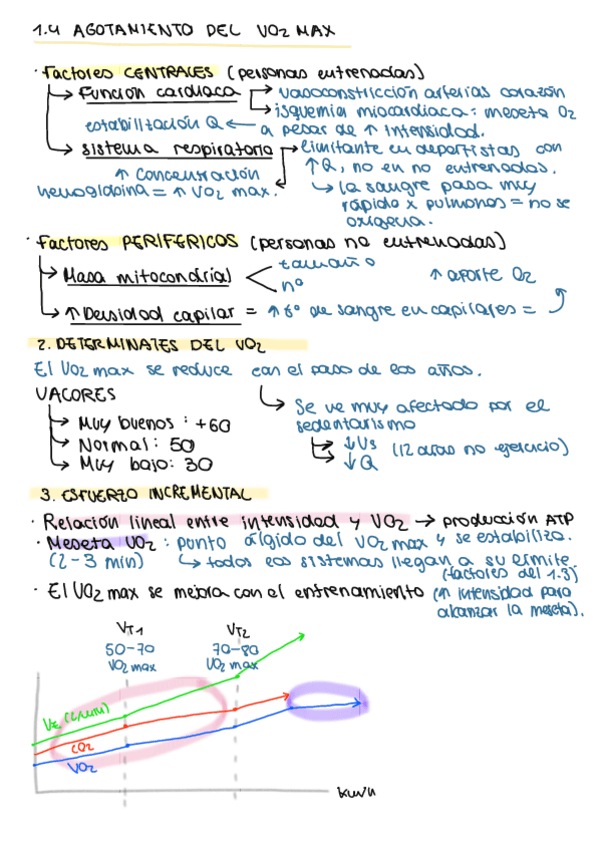 1.4 AGOTAMIENTO DEL VO2 MAX
· Factores CENTRALES (personas entrenadas)
→ Función cardiaca → vasoconstricción arterias corazón
→ isquemia miocardiaca: meseta O2
estabilitación Q ← a pesar de ↑ intensidad.
→ sistema respiratorio → limitante en deportistas con
↑ concentración ↑Q, no en no entrenados.
hemoglobina = ↑ VO2 max. → la sangre pasa muy
rápido x pulmones = no se
oxigena.
· Factores PERIFÉRICOS (personas no entrenadas)
→ Masa mitocondrial < tamaño ↑ aporte O2
nº
→ ↑ Densidad capilar = ↑ tº de sangre en capilares =
2. DETERMINATES DEL VO2
El VO2 max se reduce con el paso de los años.
VALORES → Se ve muy afectado por el
sedentarismo
→ Muy buenos: +60
→ Normal: 50 → ↓Vs (12 días no ejercicio)
→ Muy bajo: 30 → ↓Q
3. ESFUERZO INCREMENTAL
· Relación lineal entre intensidad y VO2 → producción ATP
· Meseta VO2: punto álgido del VO2 max y se estabiliza.
(2-3 min) → todos los sistemas llegan a su límite.
(factores del 1.3)
· El VO2 max se mejora con el entrenamiento (↑ intensidad para
alcanzar la meseta).
VT1 VT2
50-70 70-80
VO2 max VO2 max
VE (L/min)
CO2
VO2
km/h